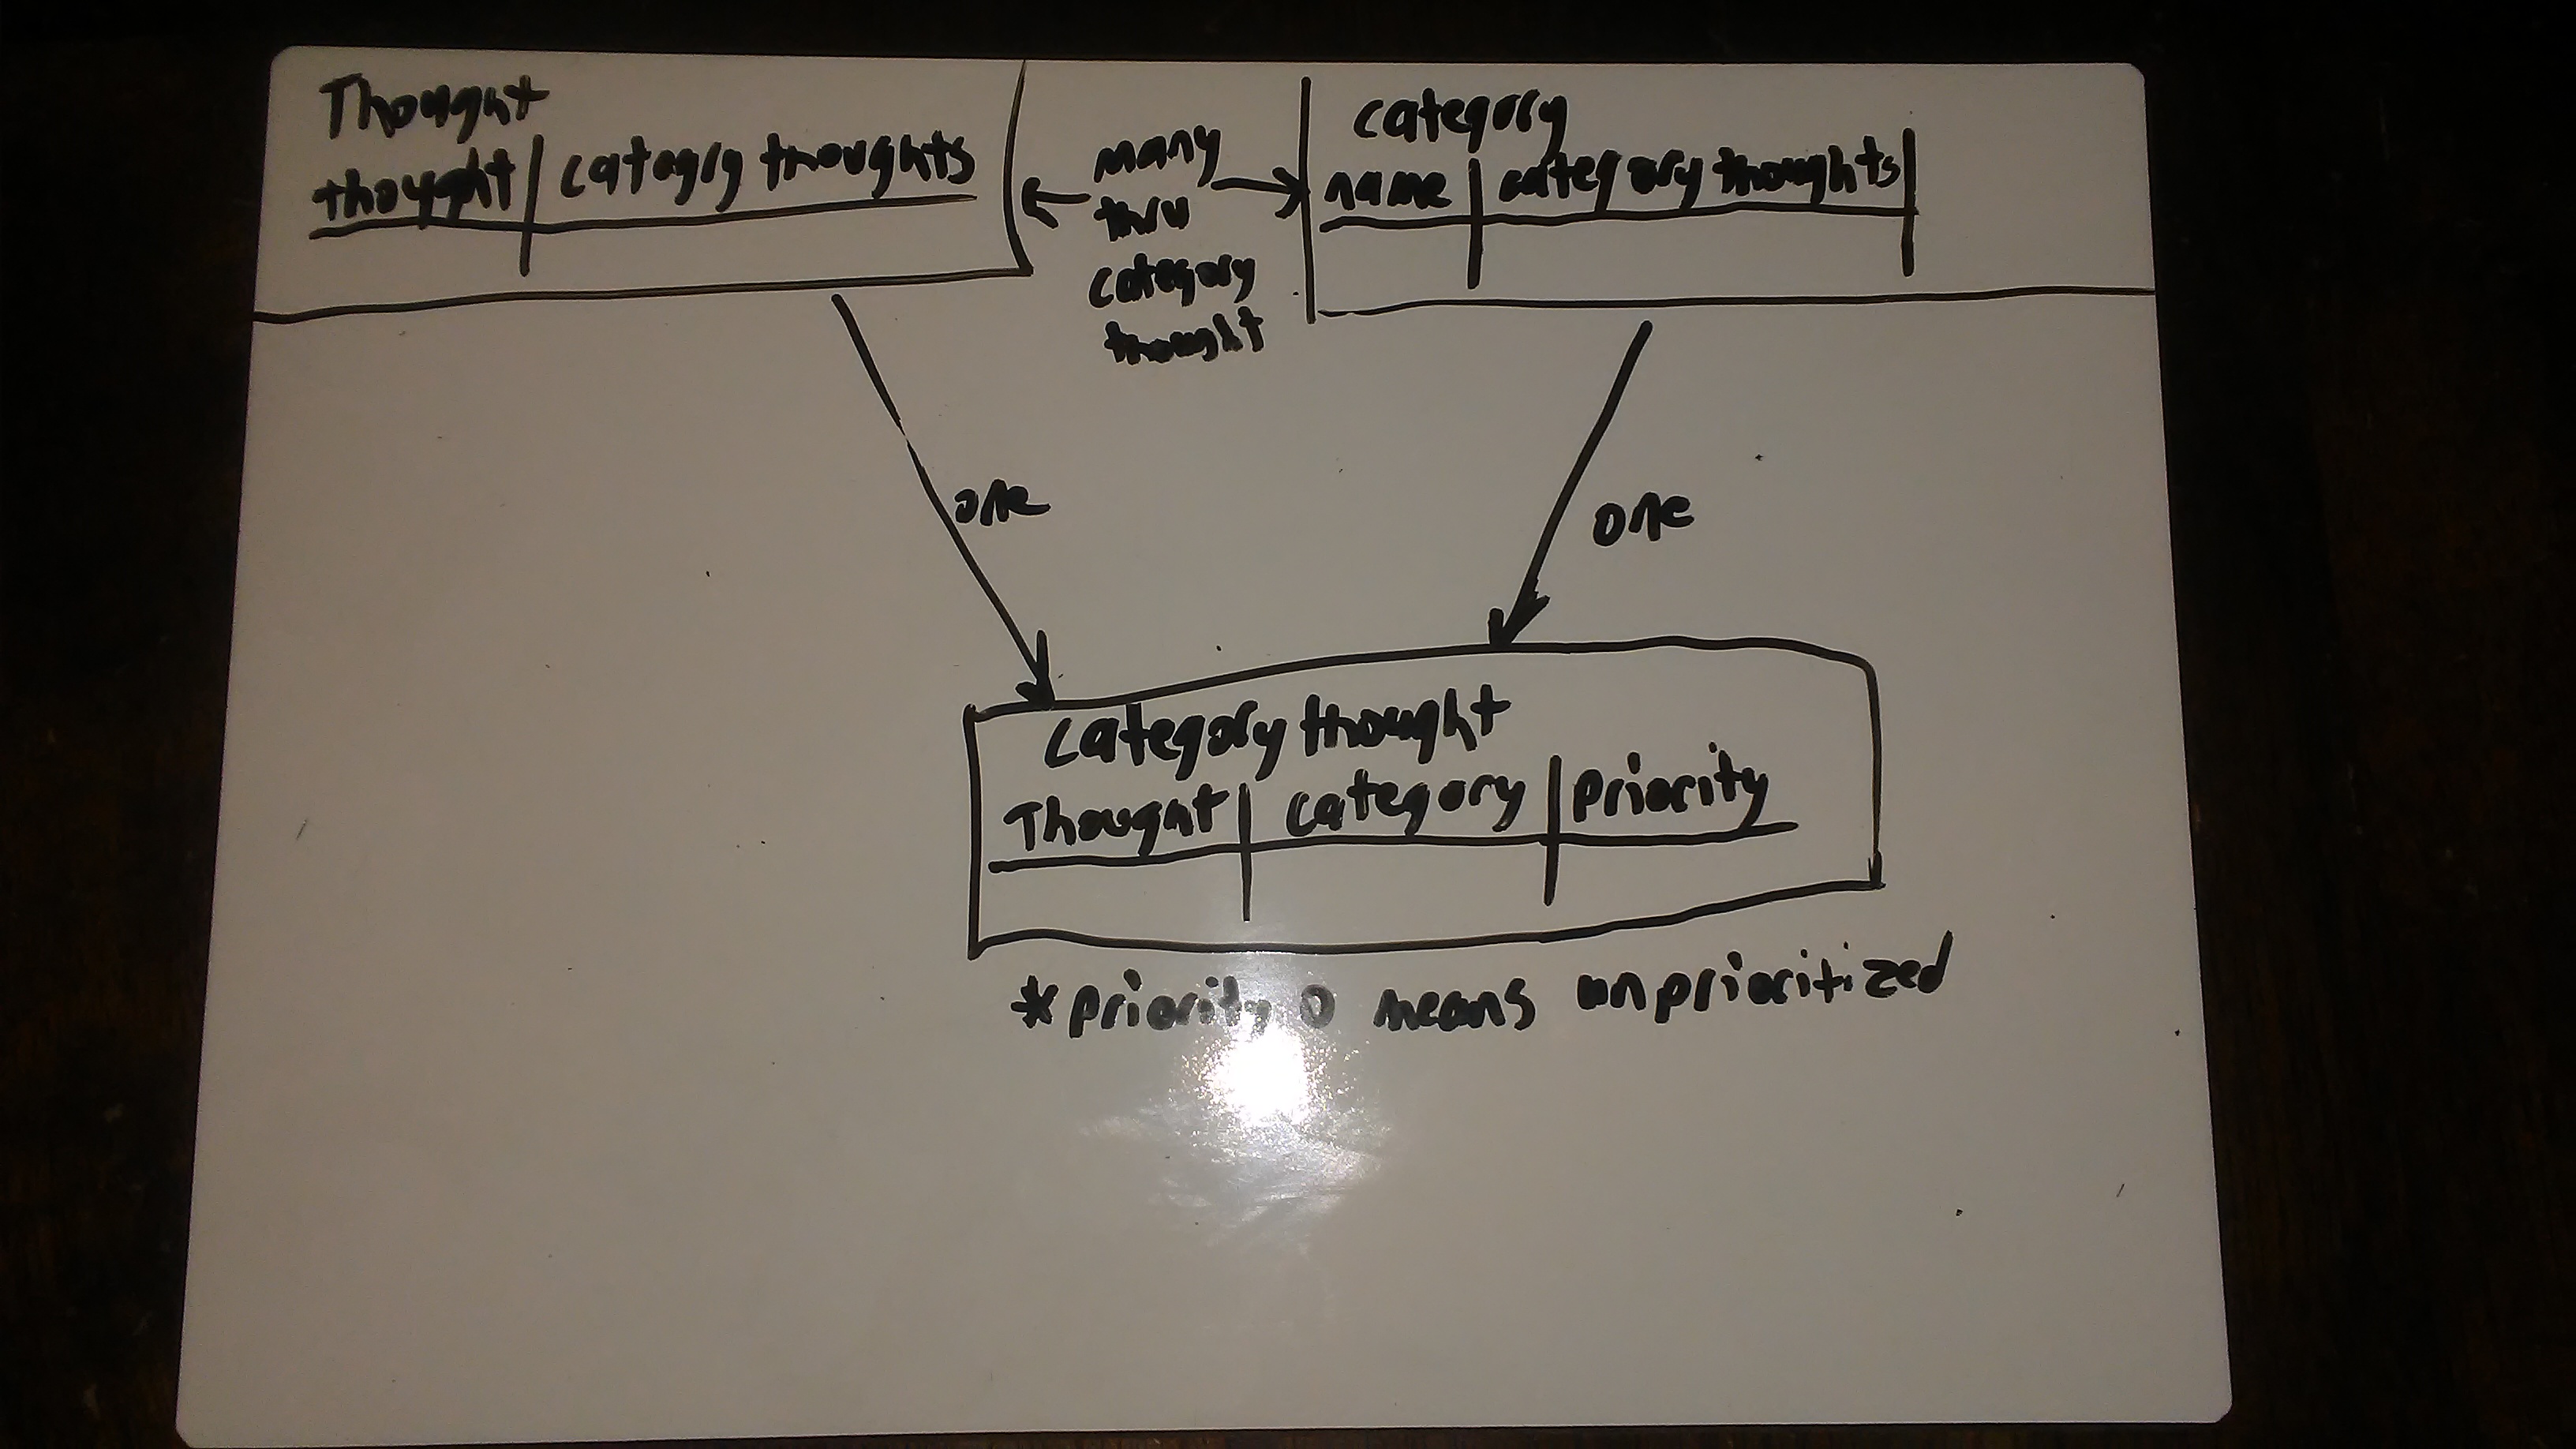 Thought
thought | category thoughts
← many →
thru
category
thought
category
name | category thoughts |
one
one
category thought
Thought | category | priority
*priority 0 means unprioritized